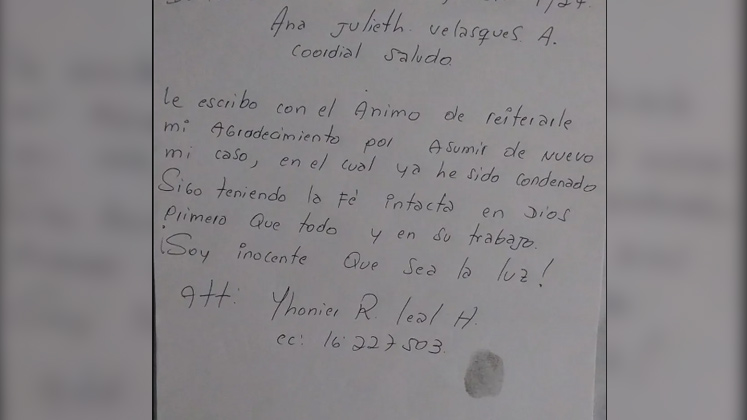 1/24.
Ana Julieth. Velasques A.
Coordial Saludo
Le escribo con el Animo de reiterarle
mi Agradecimiento por Asumir de Nuevo
mi caso, en el cual ya he sido Condenado
Sigo teniendo la Fé intacta en Dios
Primero Que todo y en su trabajo.
¡Soy inocente Que sea la luz!
att: Yhonier R. leal H.
cc: 16.227503